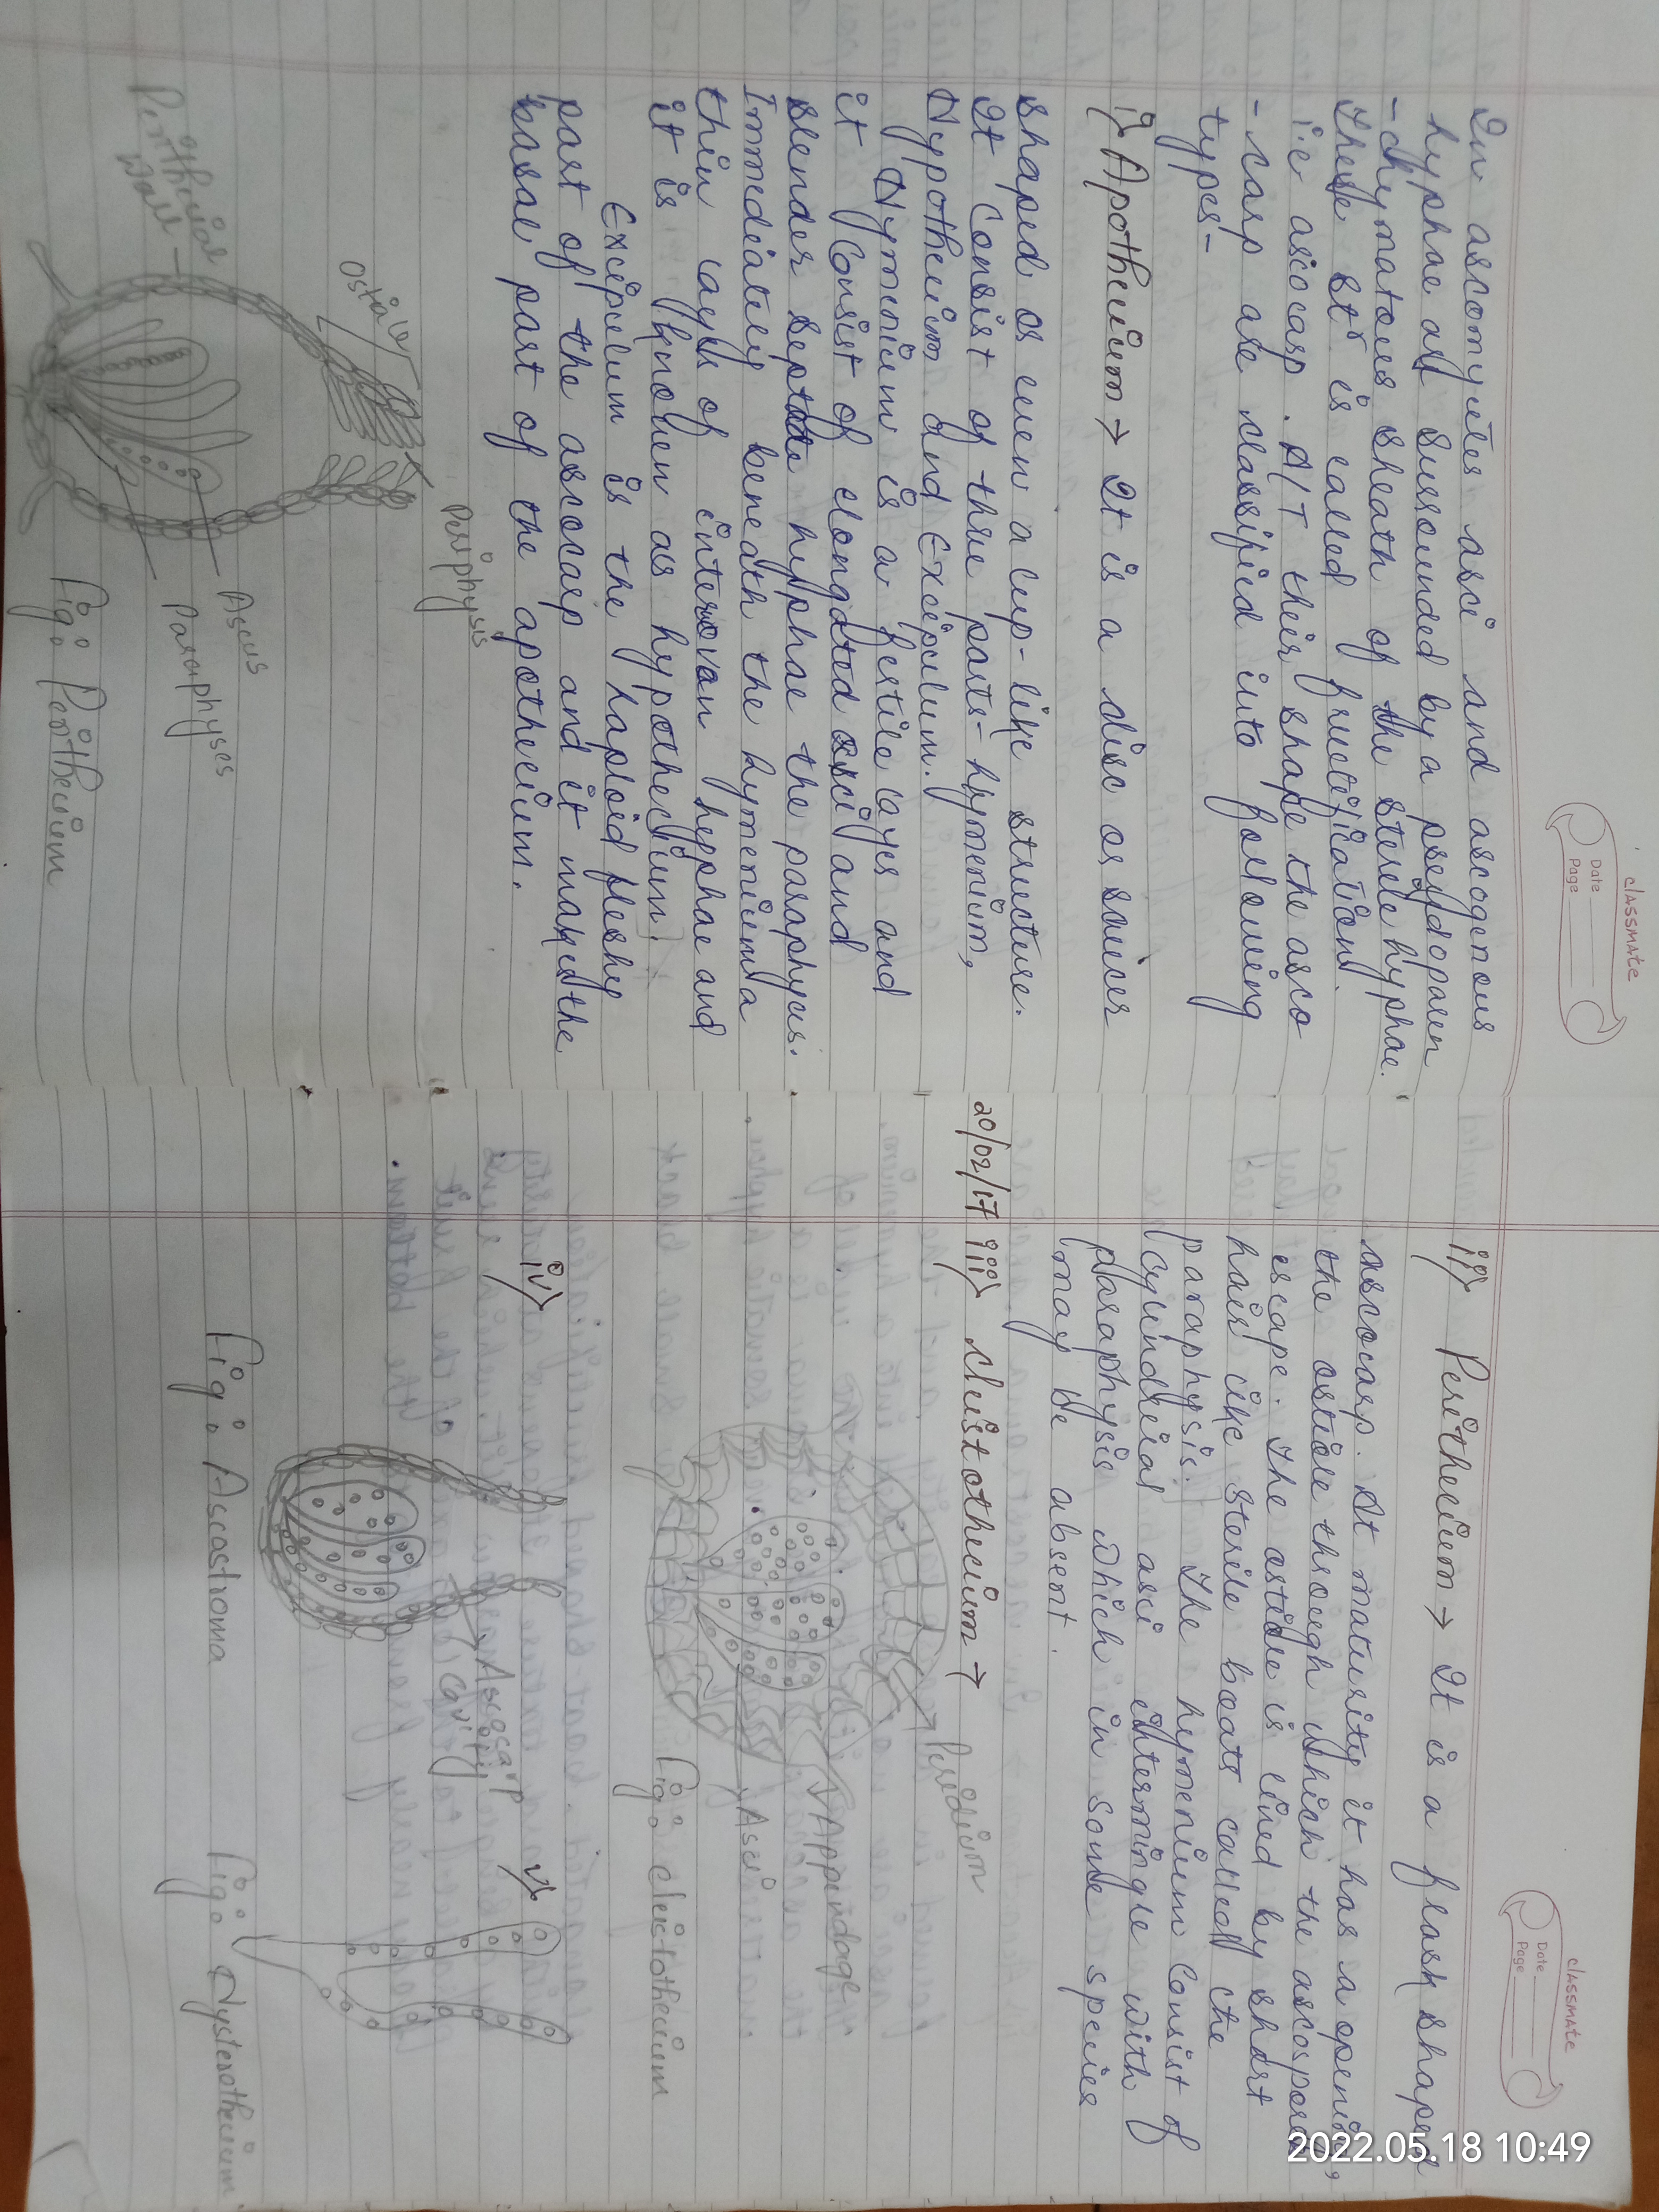 classmate
Date
Page
In ascomycetes asci and ascogenous
hyphae are surrounded by a pseudoparen
-chymatous sheath of the sterile hyphae.
These str is called fructifications
i.e ascocarp. A/T their shape the asco
-carp are classified into following
types-
i> Apothecium → It is a disc or saucer
shaped or even a cup-like structure.
It Consist of three parts- hymenium,
Hypothecium and Excipulum.
Hymenium is a fertile layer and
it Consist of elongated asci and
slender septate hyphae the paraphyces.
Immediately beneath the hymenium a
thin layer of interovan hyphae and
it is known as hypothecium.
Excipulum is the haploid fleshy
part of the ascocarp and it makes the
basal part of the apothecium.
Periphysis
Ostiole
Perithecial
wall
Ascus
Paraphyses
Fig: Perithecium
classmate
Date
Page
ii> Perithecium → It is a flask shaped
ascocarp. At maturity it has a opening,
the ostiole through which the ascospores
escape. The ostiole is lined by short
hair like sterile boats called the
paraphysis. The hymenium Consist of
Cylindrical asci intermingle with
paraphysis which in some species
may be absent.
20/02/17 iii> Cleistothecium →
Peridium
Appendage
Asci
Fig: cleistothecium
iv>
v>
Ascocarp
(Cavity)
Fig: Ascostroma
Fig: Hysterothecium
2022.05.18 10:49